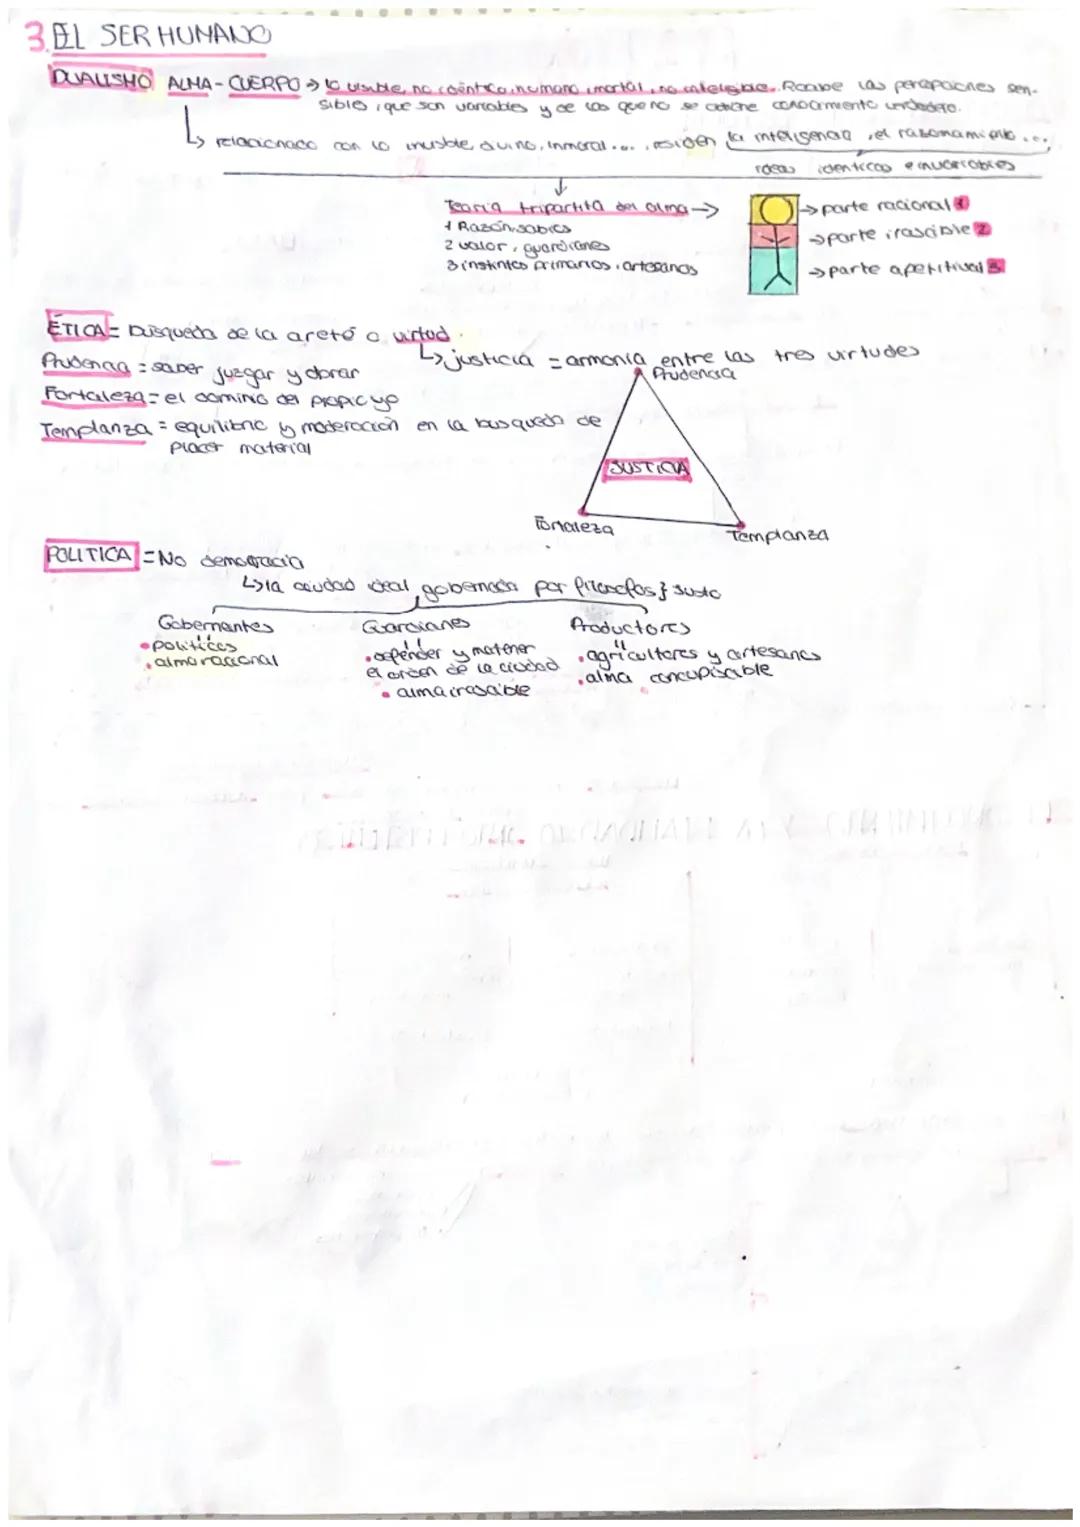 3. EL SER HUMANO
DUALISMO ALMA - CUERPO → lo visible, no idéntico, humano, mortal, no inteligible. Recibe las percepciones sen-
sibles, que son variables y de las que no se obtiene conocimiento verdadero.
↳ relacionado con lo invisible, divino, inmoral..., residen la inteligencia, el razonamiento...
ideas identicas e invariables
Teoría tripartita del alma →
1 Razón, sabios
2 valor, guardianes
3 instintos primarios, artesanos
→ parte racional 1
→ parte irascible 2
→ parte apetitiva 3
ÉTICA = Búsqueda de la areté o virtud.
↳ justicia = armonía entre las tres virtudes
Prudencia = saber juzgar y obrar
Prudencia
Fortaleza = el dominio del propio yo
Templanza = equilibrio y moderación en la busqueda de
placer material
JUSTICIA
Fortaleza
Templanza
POLITICA = No democracia
↳ la ciudad ideal gobernada por filosofos } justo
Gobernantes
• politicos
• alma racional
Guardianes
• defender y matener
el orden de la ciudad
• alma irascible
Productores
• agricultores y artesanos
• alma concupiscible